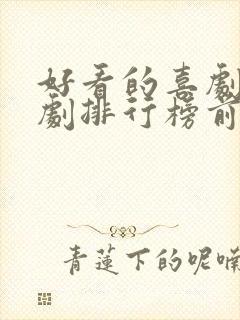 好看的喜劇
劇排行榜前
青蓮下的呢喃